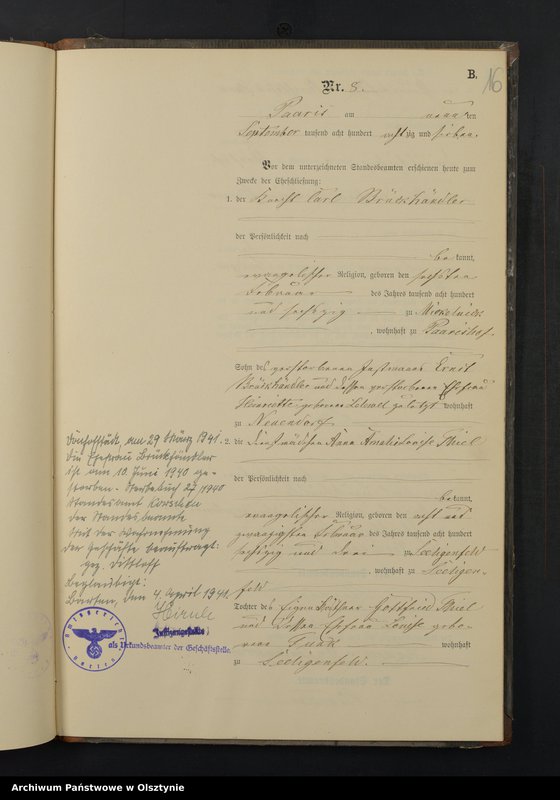 B.
16
Nr. 8.
Paaris am neunten
September tausend acht hundert achtzig und sieben.
Vor dem unterzeichneten Standesbeamten erschienen heute zum
Zwecke der Eheschließung:
1. der Knecht Carl Brückhändler
der Persönlichkeit nach
bekannt,
evangelischer Religion, geboren den sechsten
Februar des Jahres tausend acht hundert
und sechzig zu
, wohnhaft zu Paarishof.
Sohn des verstorbenen Instmanns Ernst
Brückhändler und dessen verstorbenen Ehefrau
Henriette, geborene zuletzt wohnhaft
zu Neuendorf
2. die Dienstmädchen Anna Thiel
der Persönlichkeit nach
bekannt,
evangelischer Religion, geboren den acht und
zwanzigsten Februar des Jahres tausend acht hundert
sechzig und drei zu Seeligenfeld
, wohnhaft zu Seeligen-
feld
Tochter des Eigenkäthner Gottfried Thiel
und dessen Ehefrau Louise gebo-
rene Funk wohnhaft
zu Seeligenfeld.
Dönhofstädt, am 29 März 1941.
Die Ehefrau Brückhändler
ist am 10. Juni 1940 ge-
storben. Sterbebuch 27/1940
Standesamt Korschen
Der Standesbeamte
Mit der Wahrnehmung
der Geschäfte beauftragt:
gez. Dittloff
Beglaubigt:
Barten, den 4. April 1941.
Justizangestellte
als Urkundsbeamter der Geschäftsstelle.
Amtsgericht
Barten
Archiwum Państwowe w Olsztynie